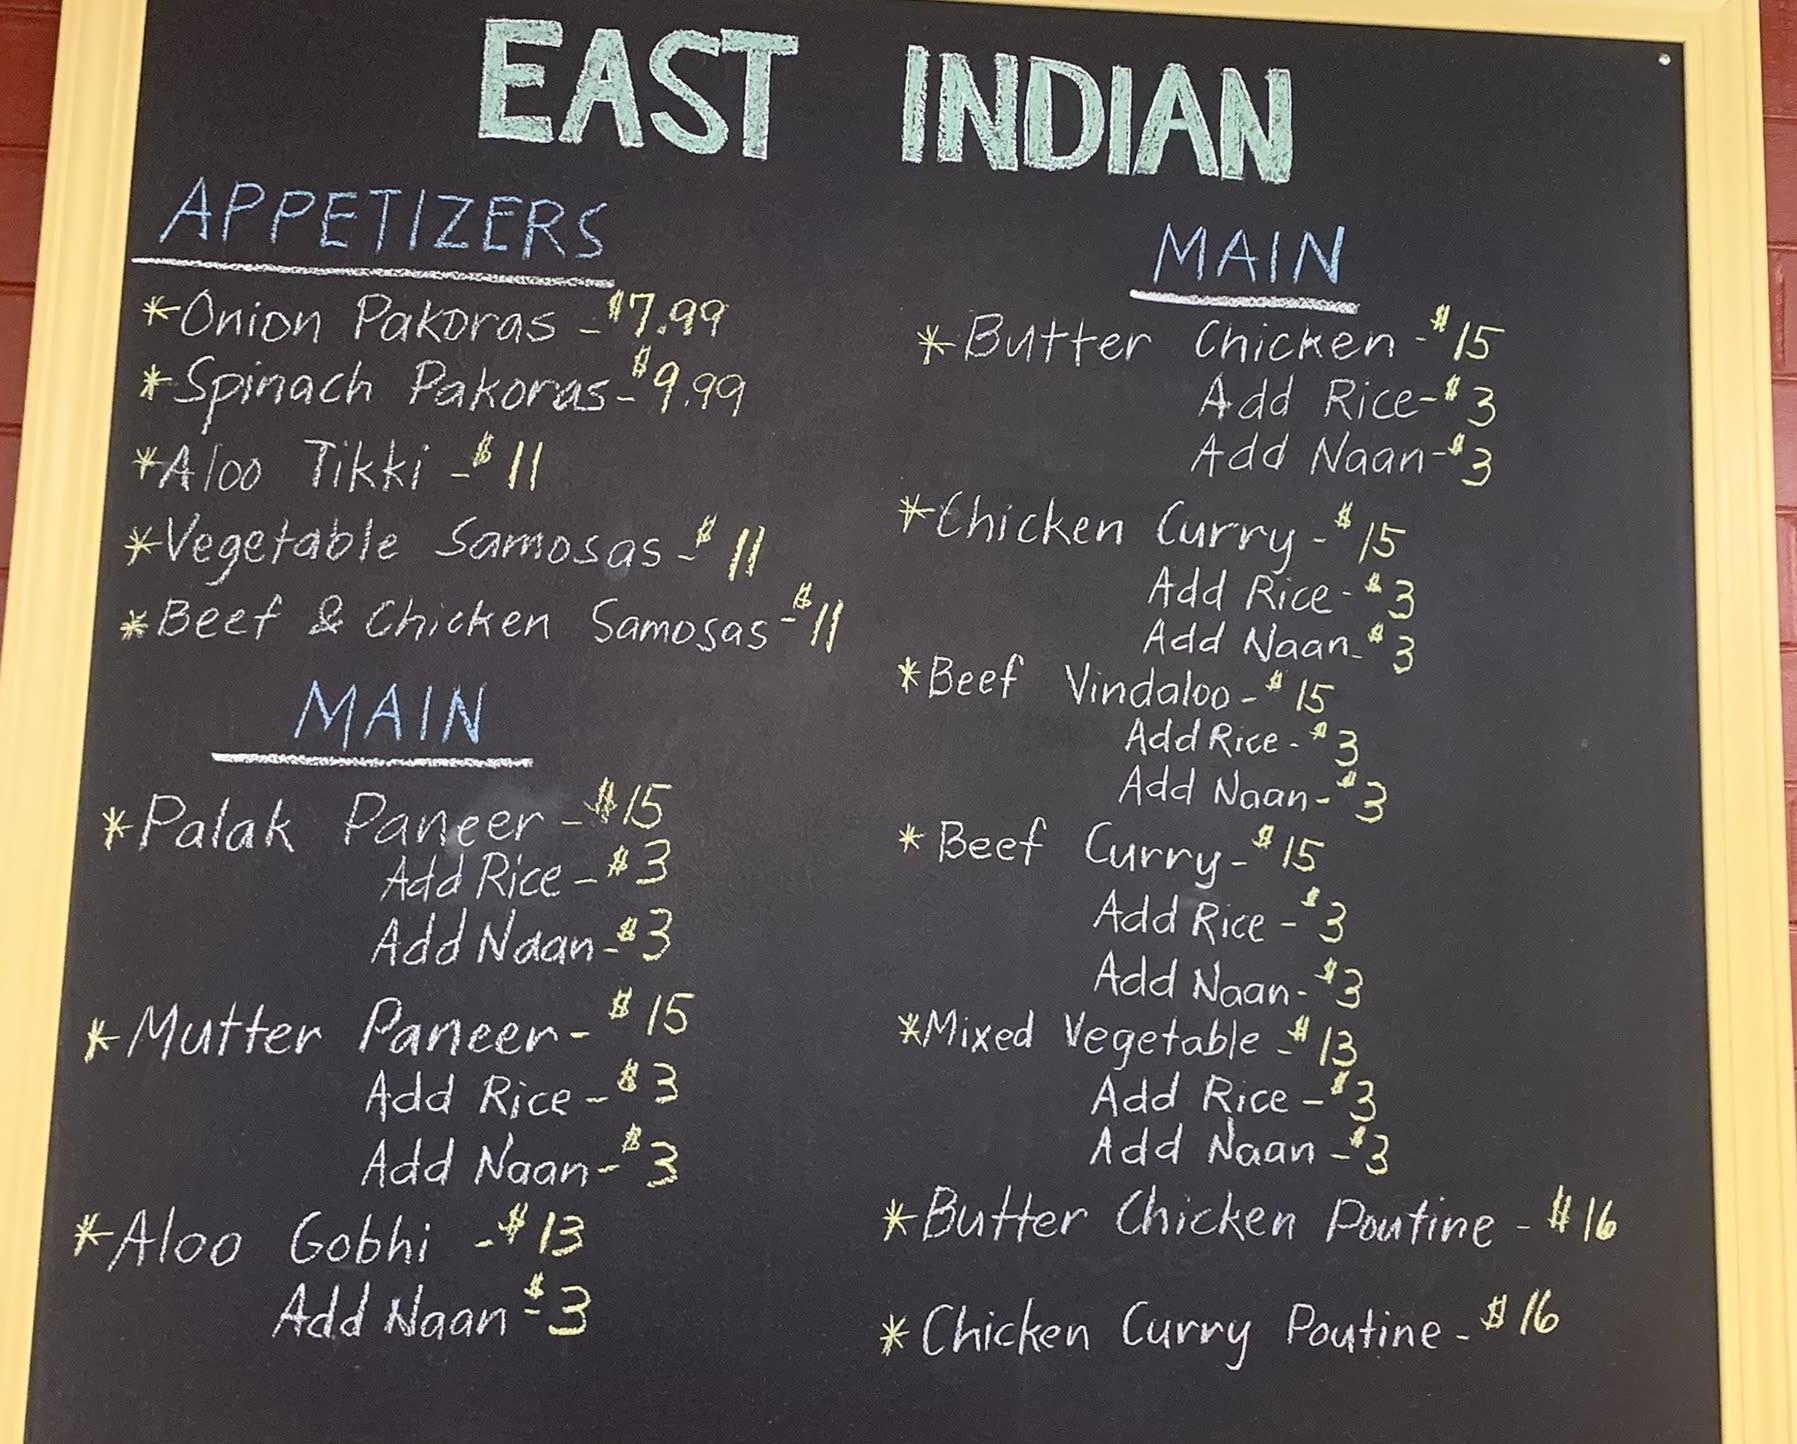 EAST INDIAN
APPETIZERS
*Onion Pakoras - $7.99
*Spinach Pakoras - $9.99
*Aloo Tikki - $11
*Vegetable Samosas - $11
*Beef & Chicken Samosas - $11
MAIN
*Palak Paneer - $15
Add Rice - $3
Add Naan - $3
*Mutter Paneer - $15
Add Rice - $3
Add Naan - $3
*Aloo Gobhi - $13
Add Naan - $3
MAIN
*Butter Chicken - $15
Add Rice - $3
Add Naan - $3
*Chicken Curry - $15
Add Rice - $3
Add Naan - $3
*Beef Vindaloo - $15
Add Rice - $3
Add Naan - $3
*Beef Curry - $15
Add Rice - $3
Add Naan - $3
*Mixed Vegetable - $13
Add Rice - $3
Add Naan - $3
*Butter Chicken Poutine - $16
*Chicken Curry Poutine - $16